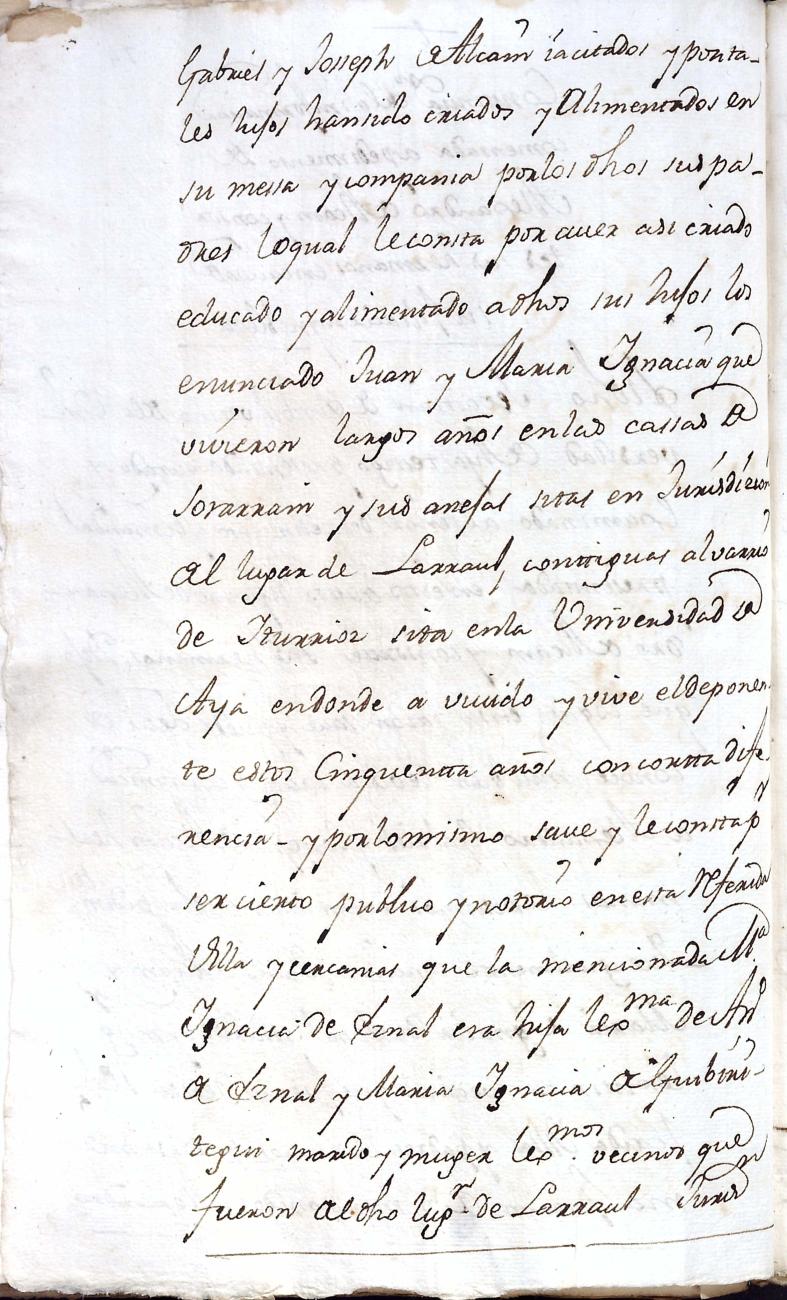 Gabriel y Joseph de Alcain ia citados y por ta-
les hijos han sido criados y Alimentados en
su messa y compania por los dhos sus pa-
dres lo qual le consta por aver asi criado
educado y alimentado a dhos sus hijos los
enunciado Juan y Maria Ignacia que
vivieron largos años en las cassas de
Sorarrain y sus anejas sitas en Jurisdicion
del lugar de Larraul, conttiguas al varrio
de Iturrioz sita en la Universidad de
Aya en donde a vivido y vive el deponen-
te estos Cinquentta años con cortta dife-
rencia - y por lo mismo save y le consta p.r
ser cierto publico y notorio en esta referida
Villa y cercanias que la mencionada M.a
Ignacia de Ernal era hija lexma de An.o
de Ernal y Maria Ignacia de
tegui marido y muger lexmos. vecinos que
fueron del dho lug.r de Larraul